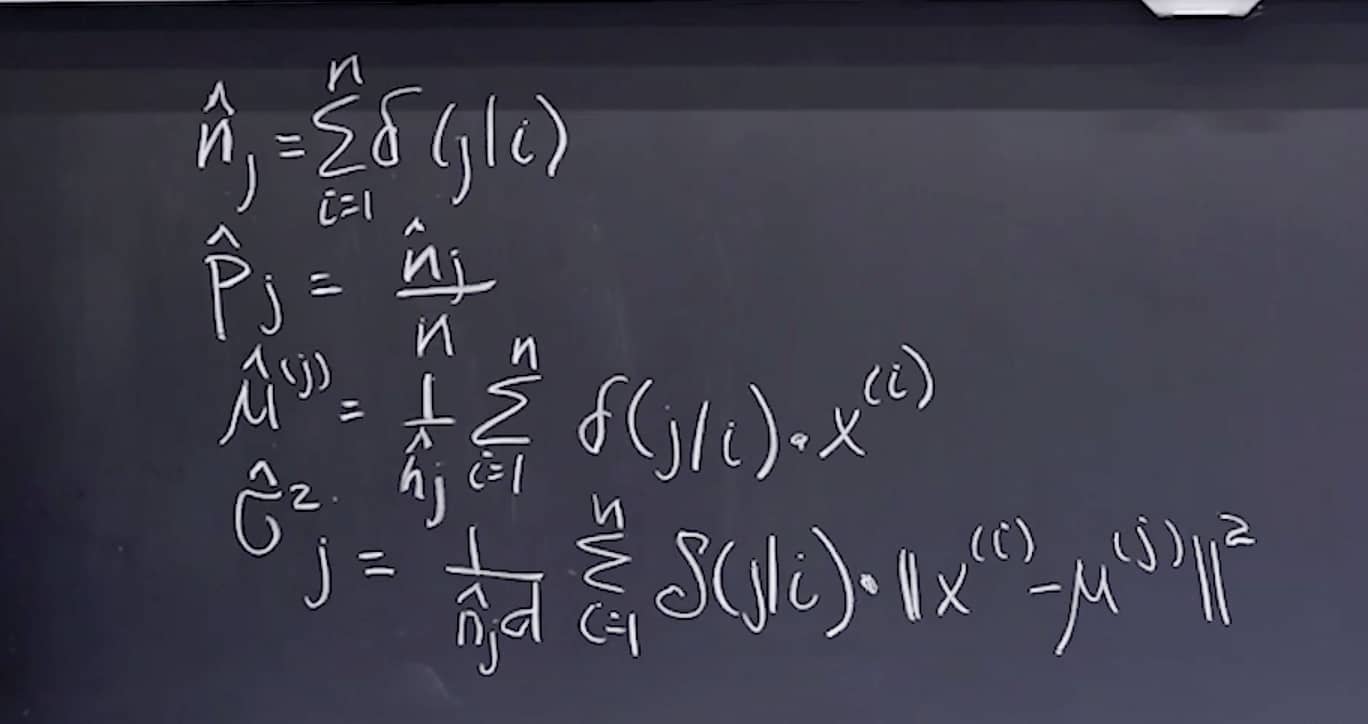 n̂_j = \sum_{i=1}^{n} δ(j|i)
p̂_j = \frac{n̂_j}{n}
μ̂^{(j)} = \frac{1}{n̂_j} \sum_{i=1}^{n} δ(j|i) · x^{(i)}
σ̂^2_j = \frac{1}{n̂_j d} \sum_{i=1}^{n} δ(j|i) · ||x^{(i)} - μ^{(j)}||^2